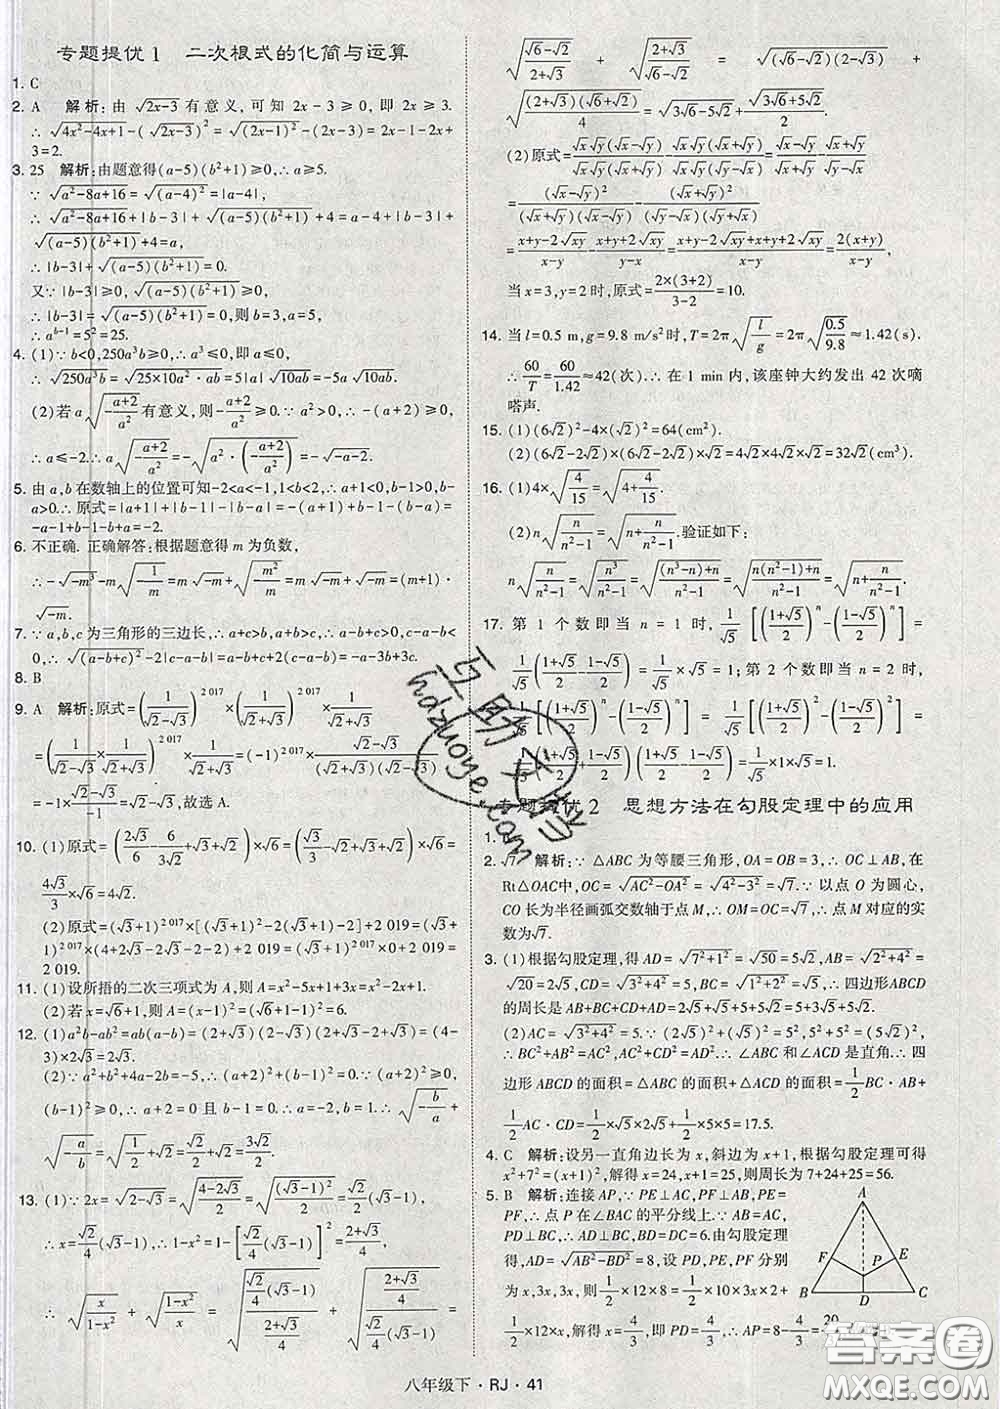 专题提优1 二次根式的化简与运算
1. C
2. A 解析:由√(2x-3)有意义,可知2x-3≥0,即2x≥3.
∴√(4x²-4x+1)-(√(2x-3))²=√((2x-1)²)-(2x-3)=2x-1-2x+
3=2.
3. 25 解析:由题意得(a-5)(b²+1)≥0,∴a≥5.
∵√(a²-8a+16)=√((a-4)²)=|a-4|,
∴√(a²-8a+16)+|b-3|+√((a-5)(b²+1))+4=a-4+|b-3|+
√((a-5)(b²+1))+4=a,
∴|b-3|+√((a-5)(b²+1))=0.
又∵|b-3|≥0,√((a-5)(b²+1))≥0,
∴|b-3|=√((a-5)(b²+1))=0,则b=3,a=5,
∴a^(b-1)=5²=25.
4. (1)∵b<0,250a³b≥0,∴a³≤0,即a≤0,
∴√(250a³b)=√(25×10a²·ab)=5|a|√(10ab)=-5a√(10ab).
(2)若a√(-(a+2)/a²)有意义,则-(a+2)/a²≥0.∵a²>0,∴-(a+2)≥0,
∴a≤-2.∴a√(-(a+2)/a²)=-√(a²·(-(a+2)/a²))=-√(-a-2).
5. 由a,b在数轴上的位置可知-2<a<-1,1<b<2,∴a+1<0,b-1>0,b-
a>0.∴原式=|a+1|+|b-1|-|b-a|=-(a+1)+(b-1)-(b-a)=
-a-1+b-1-b+a=-2.
6. 不正确. 正确解答:根据题意得m为负数,
∴-√(-m³)-m√(-1/m)=m√(-m)+√(-m²/m)=m√(-m)+√(-m)=(m+1)·
√(-m).
7. ∵a,b,c为三角形的三边长,∴a+c>b,a+b>c,∴a-b+c>0,c-a-b<
0,∴√((a-b+c)²)-2|c-a-b|=a-b+c+2c-2a-2b=-a-3b+3c.
8. B
9. A 解析:原式=(1/(√2-√3))^2 017×(1/(√2+√3))^2 017×1/(√2+√3)
=(1/(√2-√3)×1/(√2+√3))^2 017×1/(√2+√3)=(-1)^2 017×(√2-√3)/((√2+√3)(√2-√3))
=-1×(√2-√3)/(-1)=√2-√3,故选A.
10. (1)原式=(2√3/3-6/(3√2)+√2+2√3/3)×√6=(2√3/3-√2+√2+2√3/3)×√6=
4√3/3×√6=4√2.
(2)原式=(√3+1)^2 017×[(√3+1)²-2(√3+1)-2]+2 019=(√3+
1)^2 017×(4+2√3-2√3-2-2)+2 019=(√3+1)^2 017×0+2 019=
2 019.
11. (1)设所捂的二次三项式为A,则A=x²-5x+1+3x=x²-2x+1.
(2)若x=√6+1,则A=(x-1)²=(√6+1-1)²=6.
12. (1)a²b-ab²=ab(a-b)=(2+√3)(2-√3)(2+√3-2+√3)=(4-
3)×2√3=2√3.
(2)∵a²+b²+4a-2b=-5,∴(a+2)²+(b-1)²=0.∵(a+2)²≥0,
(b-1)²≥0,∴a+2=0且b-1=0.∴a=-2,b=1.∴√(-b/a)+
√(-a/b)=√(1/2)+√2=√2/2+√2=3√2/2.
13. (1)∵2x=√(2-√3)=√((4-2√3)/2)=√((√3-1)²/2)=√2/2(√3-1),
∴x=√2/4(√3-1),∴1-x²=1-[√2/4(√3-1)]²=(2+√3)/4.
∴√(x/(1-x²))+√((1-x²)/x)=√((√2/4(√3-1))/((2+√3)/4))+√(((2+√3)/4)/(√2/4(√3-1)))=
√((√6-√2)/(2+√3))+√((2+√3)/(√6-√2))=√((√6-√2)(2-√3))+
√((2+√3)(√6+√2)/4)=√(3√6-5√2)+√(3√6+5√2)/2.
(2)原式=√x√y(√x-√y)/(√x√y(√x+√y))+√x√y(√x+√y)/(√x√y(√x-√y))=(√x-√y)/(√x+√y)+(√x+√y)/(√x-√y)
=(√x-√y)²/((√x+√y)(√x-√y))+(√x+√y)²/((√x+√y)(√x-√y))
=(x+y-2√xy)/(x-y)+(x+y+2√xy)/(x-y)=(x+y-2√xy+x+y+2√xy)/(x-y)=2(x+y)/(x-y),
当x=3,y=2时,原式=2×(3+2)/(3-2)=10.
14. 当l=0.5 m,g=9.8 m/s²时,T=2π√(l/g)=2π√(0.5/9.8)≈1.42(s).
∴60/T=60/1.42≈42(次).∴在1 min内,该座钟大约发出42次嘀
嗒声.
15. (1)(6√2)²-4×(√2)²=64(cm²).
(2)(6√2-2√2)×(6√2-2√2)×√2=4√2×4√2×√2=32√2(cm³)
16. (1)4×√(4/15)=√(4+4/15).
(2)n√(n/(n²-1))=√(n+n/(n²-1)).验证如下:
n√(n/(n²-1))=√(n³/(n²-1))=√(((n³-n)+n)/(n²-1))=√((n(n²-1)+n)/(n²-1))=√(n+n/(n²-1)).
17. 第1个数即当n=1时,1/√5[((1+√5)/2)^n-((1-√5)/2)^n]=
1/√5((1+√5)/2-(1-√5)/2)=1/√5×√5=1;第2个数即当n=2时,
1/√5[((1+√5)/2)^n-((1-√5)/2)^n]=1/√5[((1+√5)/2)²-((1-√5)/2)²]=
1/√5((1+√5)/2+(1-√5)/2)((1+√5)/2-(1-√5)/2)=1/√5×1×√5=1.
专题提优2 思想方法在勾股定理中的应用
1.
2. √7 解析:∵△ABC为等腰三角形,OA=OB=3,∴OC⊥AB,在
Rt△OAC中,OC=√(AC²-OA²)=√(4²-3²)=√7.∵以点O为圆心,
CO长为半径画弧交数轴于点M,∴OM=OC=√7,∴点M对应的实
数为√7.
3. (1)根据勾股定理,得AD=√(7²+1²)=√50=5√2,AB=√(2²+4²)=
√20=2√5,CD=√(3²+4²)=5,BC=√(1²+2²)=√5,∴四边形ABCD
的周长是AB+BC+CD+AD=2√5+√5+5+5√2=5+3√5+5√2.
(2)AC=√(3²+4²)=5.∵(2√5)²+(√5)²=5²,5²+5²=(5√2)²,
∴BC²+AB²=AC²,AC²+CD²=AD²,∴∠ABC和∠ACD是直角.∴四
边形ABCD的面积=△ABC的面积+△ACD的面积=1/2BC·AB+
1/2AC·CD=1/2×√5×2√5+1/2×5×5=17.5.
4. C 解析:设另一直角边长为x,斜边为x+1,根据勾股定理可得
x²+7²=(x+1)²,解得x=24,x+1=25,则周长为7+24+25=56.
5. B 解析:连接AP,∵PE⊥AC,PF⊥AB,PE=
PF,∴点P在∠BAC的平分线上.由勾股定理
得,AD=√(AB²-BD²)=8,设PD,PE,PF分别
为x,x,x,则1/2×10x+1/2×10x=1/2×12×8-
1/2×12×x,解得x=4/3,即PD=4/3,∴AP=8-4/3=20/3
A
F
E
P
B
D
C
八年级下·RJ·41
互助文学
hdzuoye.com
答案圈
MXQE.COM